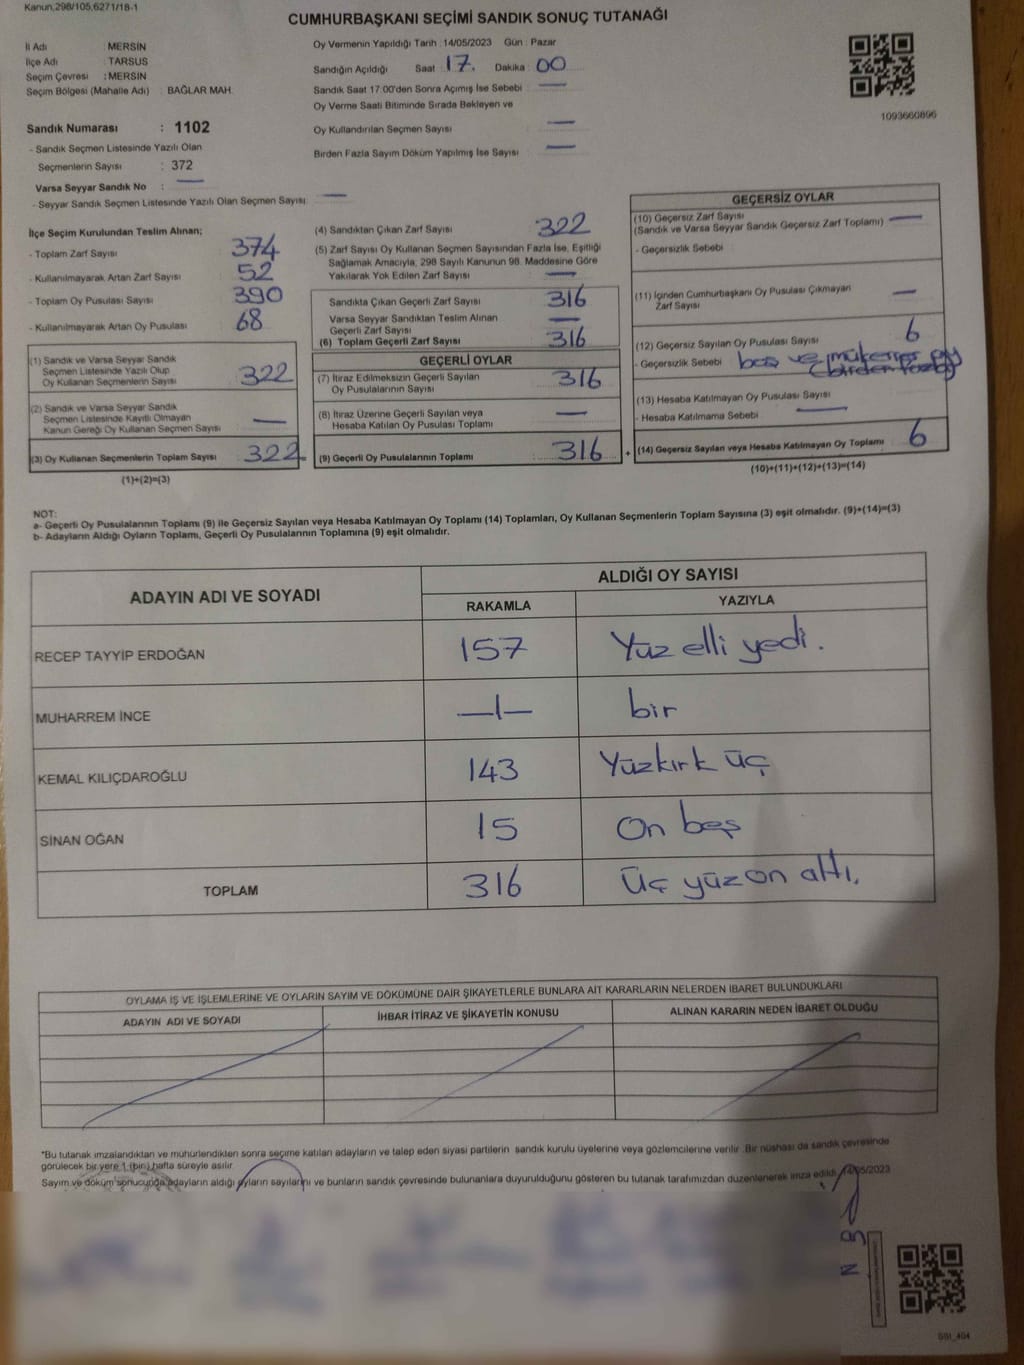 Kanun,298/105,6271/18-1
CUMHURBAŞKANI SEÇİMİ SANDIK SONUÇ TUTANAĞI
İl Adı : MERSİN
İlçe Adı : TARSUS
Seçim Çevresi : MERSİN
Seçim Bölgesi (Mahalle Adı) : BAĞLAR MAH.
Oy Vermenin Yapıldığı Tarih : 14/05/2023 Gün : Pazar
Sandığın Açıldığı Saat 17. Dakika : 00
Sandık Saat 17:00'den Sonra Açımış İse Sebebi : —
Oy Verme Saati Bitiminde Sırada Bekleyen ve
Oy Kullandırılan Seçmen Sayısı : —
Birden Fazla Sayım Döküm Yapılmış İse Sayısı : —
1093660896
Sandık Numarası : 1102
- Sandık Seçmen Listesinde Yazılı Olan
Seçmenlerin Sayısı : 372
Varsa Seyyar Sandık No : —
- Seyyar Sandık Seçmen Listesinde Yazılı Olan Seçmen Sayısı: —
İlçe Seçim Kurulundan Teslim Alınan;
- Toplam Zarf Sayısı : 374
- Kullanılmayarak Artan Zarf Sayısı : 52
- Toplam Oy Pusulası Sayısı : 390
- Kullanılmayarak Artan Oy Pusulası : 68
(1) Sandık ve Varsa Seyyar Sandık
Seçmen Listesinde Yazılı Olup
Oy Kullanan Seçmenlerin Sayısı : 322
(2) Sandık ve Varsa Seyyar Sandık
Seçmen Listesinde Kayıtlı Olmayan
Kanun Gereği Oy Kullanan Seçmen Sayısı : —
(3) Oy Kullanan Seçmenlerin Toplam Sayısı : 322
(1)+(2)=(3)
(4) Sandıktan Çıkan Zarf Sayısı : 322
(5) Zarf Sayısı Oy Kullanan Seçmen Sayısından Fazla İse, Eşitliği
Sağlamak Amacıyla, 298 Sayılı Kanunun 98. Maddesine Göre
Yakılarak Yok Edilen Zarf Sayısı : —
Sandıkta Çıkan Geçerli Zarf Sayısı : 316
Varsa Seyyar Sandıktan Teslim Alınan
Geçerli Zarf Sayısı : —
(6) Toplam Geçerli Zarf Sayısı : 316
GEÇERLİ OYLAR
(7) İtiraz Edilmeksizin Geçerli Sayılan
Oy Pusulalarının Sayısı : 316
(8) İtiraz Üzerine Geçerli Sayılan veya
Hesaba Katılan Oy Pusulası Toplamı : —
(9) Geçerli Oy Pusulalarının Toplamı : 316
+
GEÇERSİZ OYLAR
(10) Geçersiz Zarf Sayısı : —
(Sandık ve Varsa Seyyar Sandık Geçersiz Zarf Toplamı)
- Geçersizlik Sebebi :
(11) İçinden Cumhurbaşkanı Oy Pusulası Çıkmayan
Zarf Sayısı : —
(12) Geçersiz Sayılan Oy Pusulası Sayısı : 6
- Geçersizlik Sebebi : boş ve mükerrer oy
(birden fazla)
(13) Hesaba Katılmayan Oy Pusulası Sayısı : —
- Hesaba Katılmama Sebebi :
(14) Geçersiz Sayılan veya Hesaba Katılmayan Oy Toplamı : 6
(10)+(11)+(12)+(13)=(14)
NOT:
a- Geçerli Oy Pusulalarının Toplamı (9) ile Geçersiz Sayılan veya Hesaba Katılmayan Oy Toplamı (14) Toplamları, Oy Kullanan Seçmenlerin Toplam Sayısına (3) eşit olmalıdır. (9)+(14)=(3)
b- Adayların Aldığı Oyların Toplamı, Geçerli Oy Pusulalarının Toplamına (9) eşit olmalıdır.
ADAYIN ADI VE SOYADI ALDIĞI OY SAYISI
RAKAMLA YAZIYLA
RECEP TAYYİP ERDOĞAN 157 Yüz elli yedi.
MUHARREM İNCE —1— bir
KEMAL KILIÇDAROĞLU 143 Yüzkırk üç
SİNAN OĞAN 15 On beş
TOPLAM 316 Üç yüz on altı.
OYLAMA İŞ VE İŞLEMLERİNE VE OYLARIN SAYIM VE DÖKÜMÜNE DAİR ŞİKAYETLERLE BUNLARA AİT KARARLARIN NELERDEN İBARET BULUNDUKLARI
ADAYIN ADI VE SOYADI İHBAR İTİRAZ VE ŞİKAYETİN KONUSU ALINAN KARARIN NEDEN İBARET OLDUĞU
*Bu tutanak imzalandıktan ve mühürlendikten sonra seçime katılan adayların ve talep eden siyasi partilerin sandık kurulu üyelerine veya gözlemcilerine verilir. Bir nüshası da sandık çevresinde
görülecek bir yere 1 (bir) hafta süreyle asılır.
Sayım ve döküm sonucunda adayların aldığı oyların sayılarını ve bunların sandık çevresinde bulunanlara duyurulduğunu gösteren bu tutanak tarafımızdan düzenlenerek imza edildi. 14/05/2023